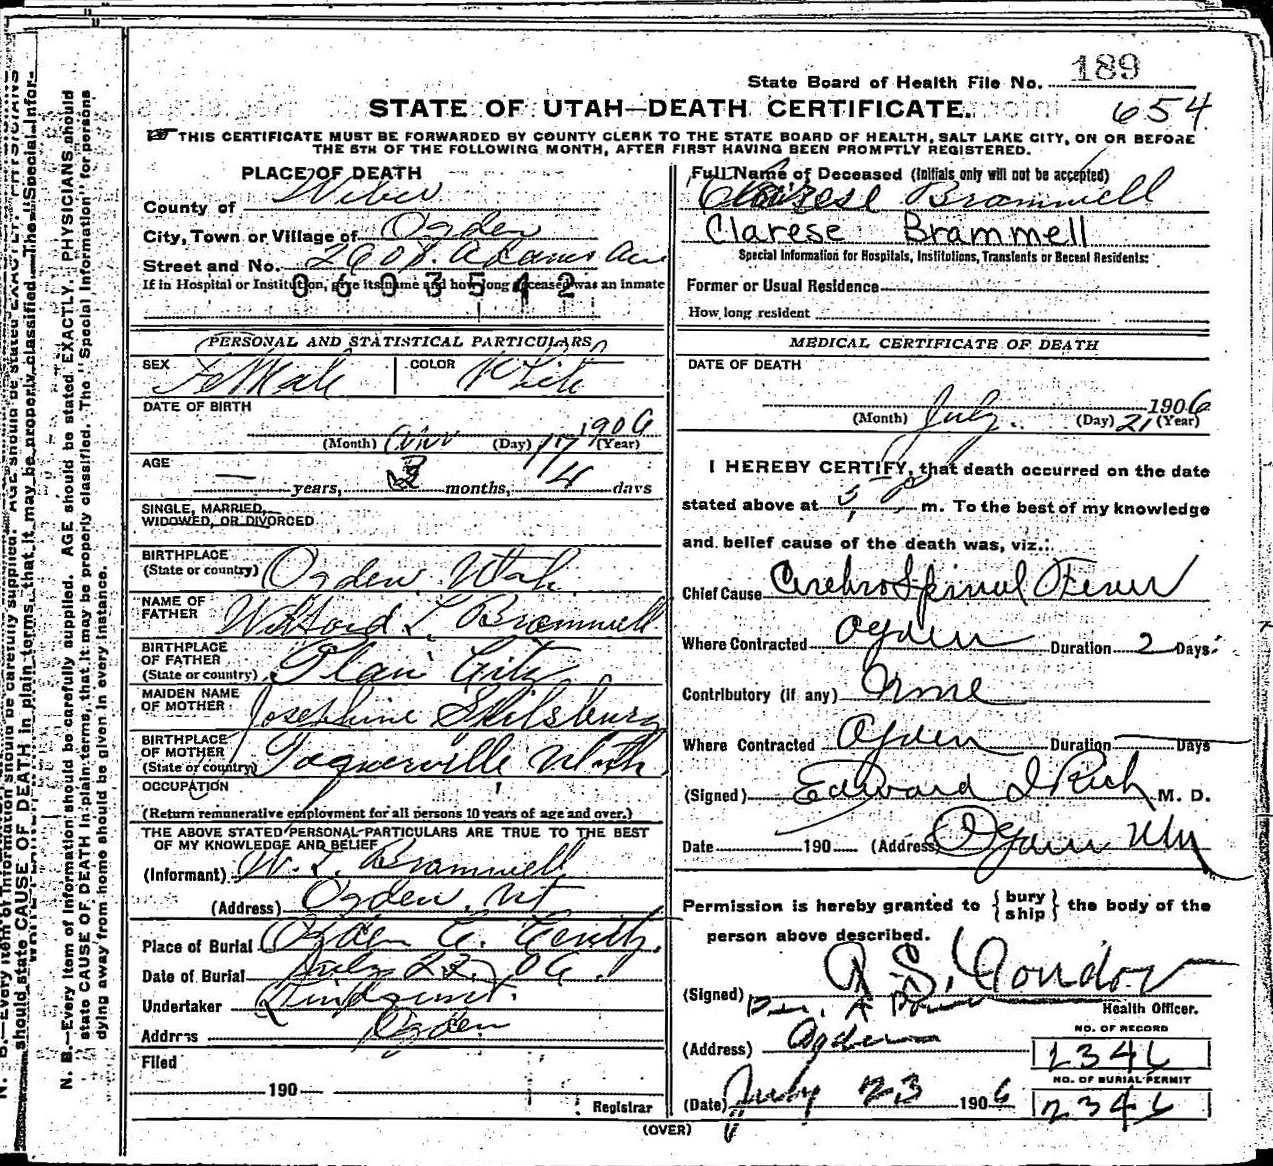 State Board of Health File No. 189
STATE OF UTAH—DEATH CERTIFICATE.
654
THIS CERTIFICATE MUST BE FORWARDED BY COUNTY CLERK TO THE STATE BOARD OF HEALTH, SALT LAKE CITY, ON OR BEFORE
THE 5TH OF THE FOLLOWING MONTH, AFTER FIRST HAVING BEEN PROMPTLY REGISTERED.
PLACE OF DEATH
County of Weber
City, Town or Village of Ogden
Street and No. 2608 Adams Ave
If in Hospital or Institution, give its name and how long deceased was an inmate
0603542
PERSONAL AND STATISTICAL PARTICULARS
SEX Female COLOR White
DATE OF BIRTH
(Month) (Day) 17 1906 (Year)
AGE
— years, 3 months, 4 days
SINGLE, MARRIED,
WIDOWED, OR DIVORCED
BIRTHPLACE
(State or country) Ogden Utah
NAME OF
FATHER Wilford L. Bramwell
BIRTHPLACE
OF FATHER
(State or country) Plain City
MAIDEN NAME
OF MOTHER Josephine Spilsbury
BIRTHPLACE
OF MOTHER
(State or country) Toquerville Utah
OCCUPATION
(Return remunerative employment for all persons 10 years of age and over.)
THE ABOVE STATED PERSONAL PARTICULARS ARE TRUE TO THE BEST
OF MY KNOWLEDGE AND BELIEF
(Informant) W. L. Bramwell
(Address) Ogden, Ut
Place of Burial Ogden C. Cemtz.
Date of Burial July 23, 06.
Undertaker Lindquist.
Address Ogden
Filed
190
Registrar
Full Name of Deceased (Initials only will not be accepted)
Clarese Bramwell
Clarese Brammell
Special Information for Hospitals, Institutions, Transients or Recent Residents:
Former or Usual Residence
How long resident
MEDICAL CERTIFICATE OF DEATH
DATE OF DEATH
(Month) July (Day) 21 1906 (Year)
I HEREBY CERTIFY, that death occurred on the date
stated above at 5 P m. To the best of my knowledge
and belief cause of the death was, viz.:
Chief Cause Cerebro Spinal Fever
Where Contracted Ogden Duration 2 Days
Contributory (if any) None
Where Contracted Ogden Duration Days
(Signed) Edward I Rich M. D.
Date 190 (Address) Ogden Utah
Permission is hereby granted to {bury ship} the body of the
person above described.
(Signed) R. S. Condon
Health Officer.
(Address) Ogden
NO. OF RECORD
2346
NO. OF BURIAL PERMIT
2346
(Date) July 23 1906
(OVER)
N. B.—Every item of information should be carefully supplied. AGE should be stated EXACTLY. PHYSICIANS should
state CAUSE OF DEATH in plain terms, that it may be properly classified. The "Special Information" for persons
dying away from home should be given in every instance.